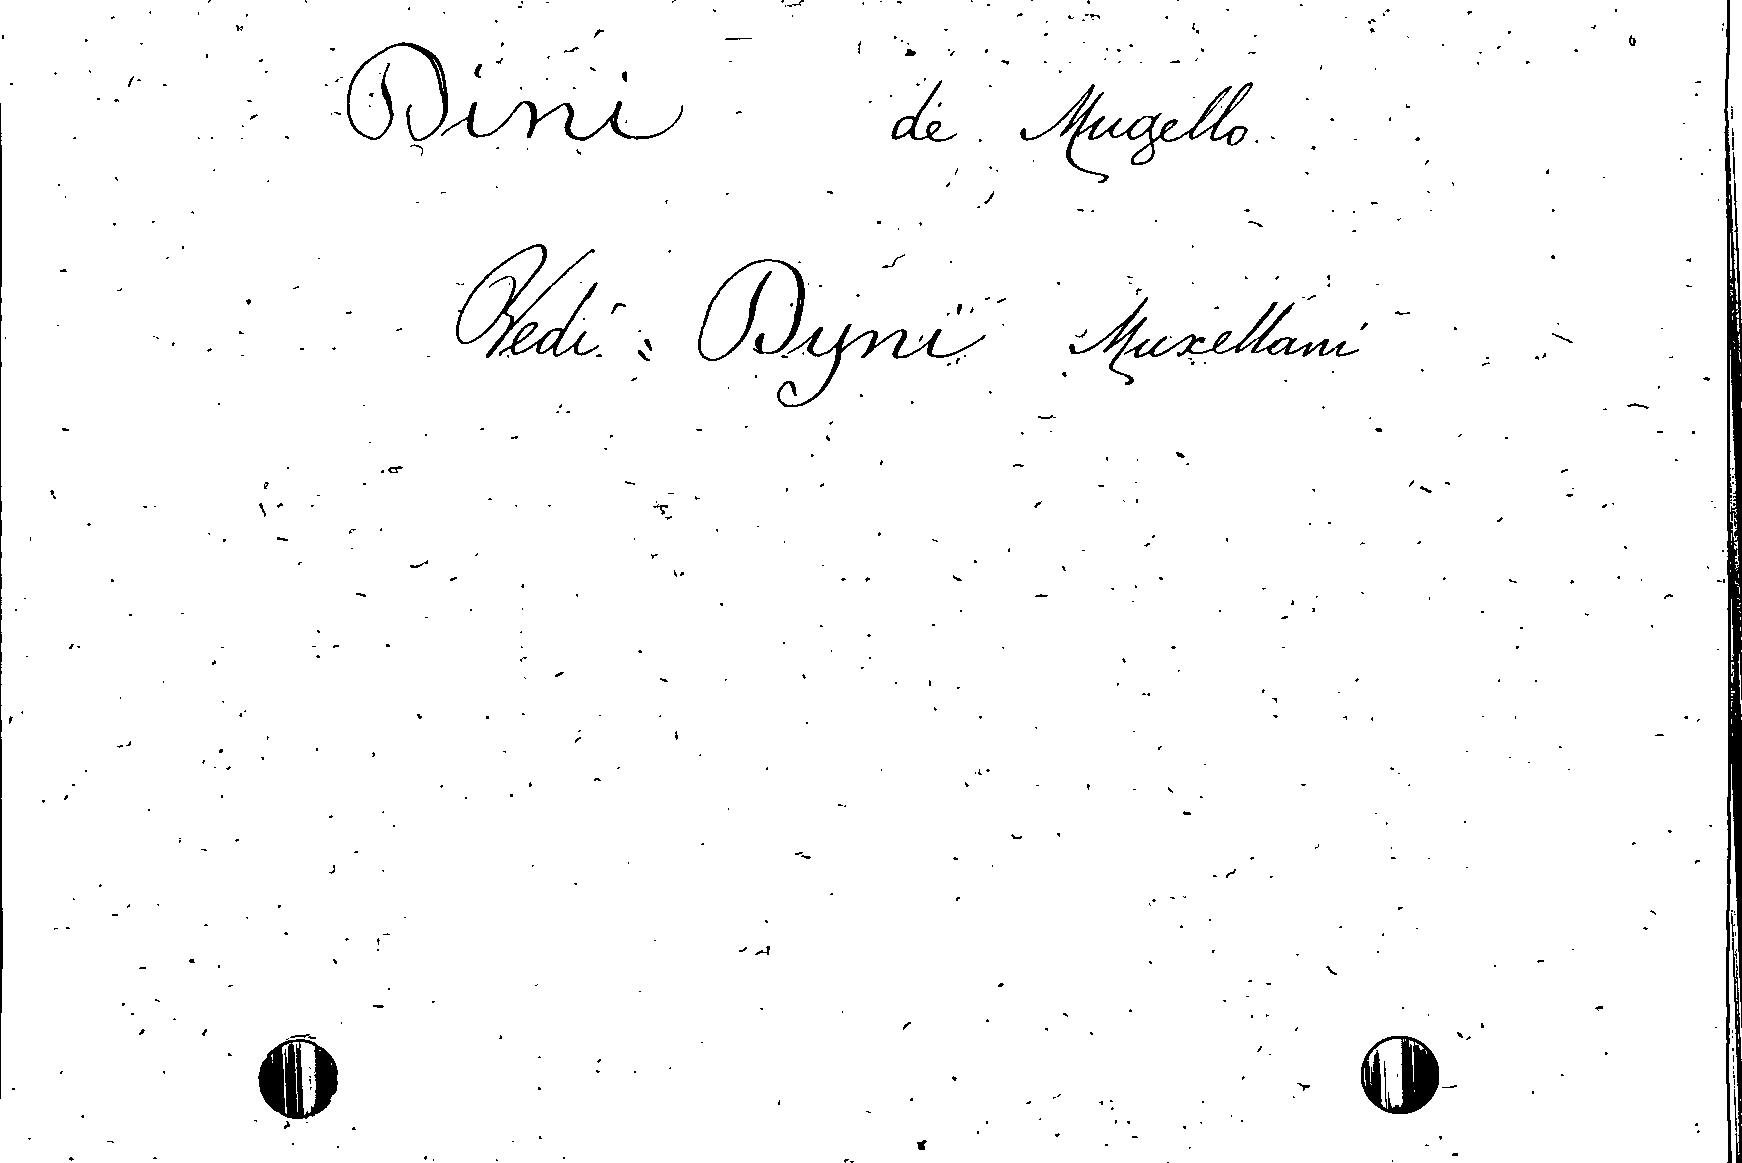 Dini de Mugello
Vedi : Dyni Muxellani